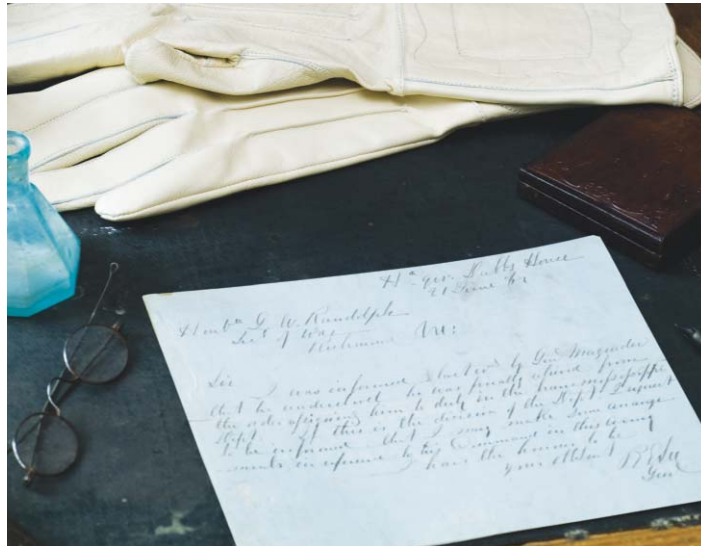 Hd Qrs Dabbs House
21 June 62
Honble G. W. Randolph
Sect of War
Richmond Va:
Sir I was informed last ev by Gen Magruder
that he understood he was finally upon from
the order assigning him to duty in the trans Mississippi
Dept. If this is the decision of the Dept I request
to be informed that I may make some arrange
ments in reference to his Command in this army
have the honour to be
your Obt Servt R E Lee
Gen